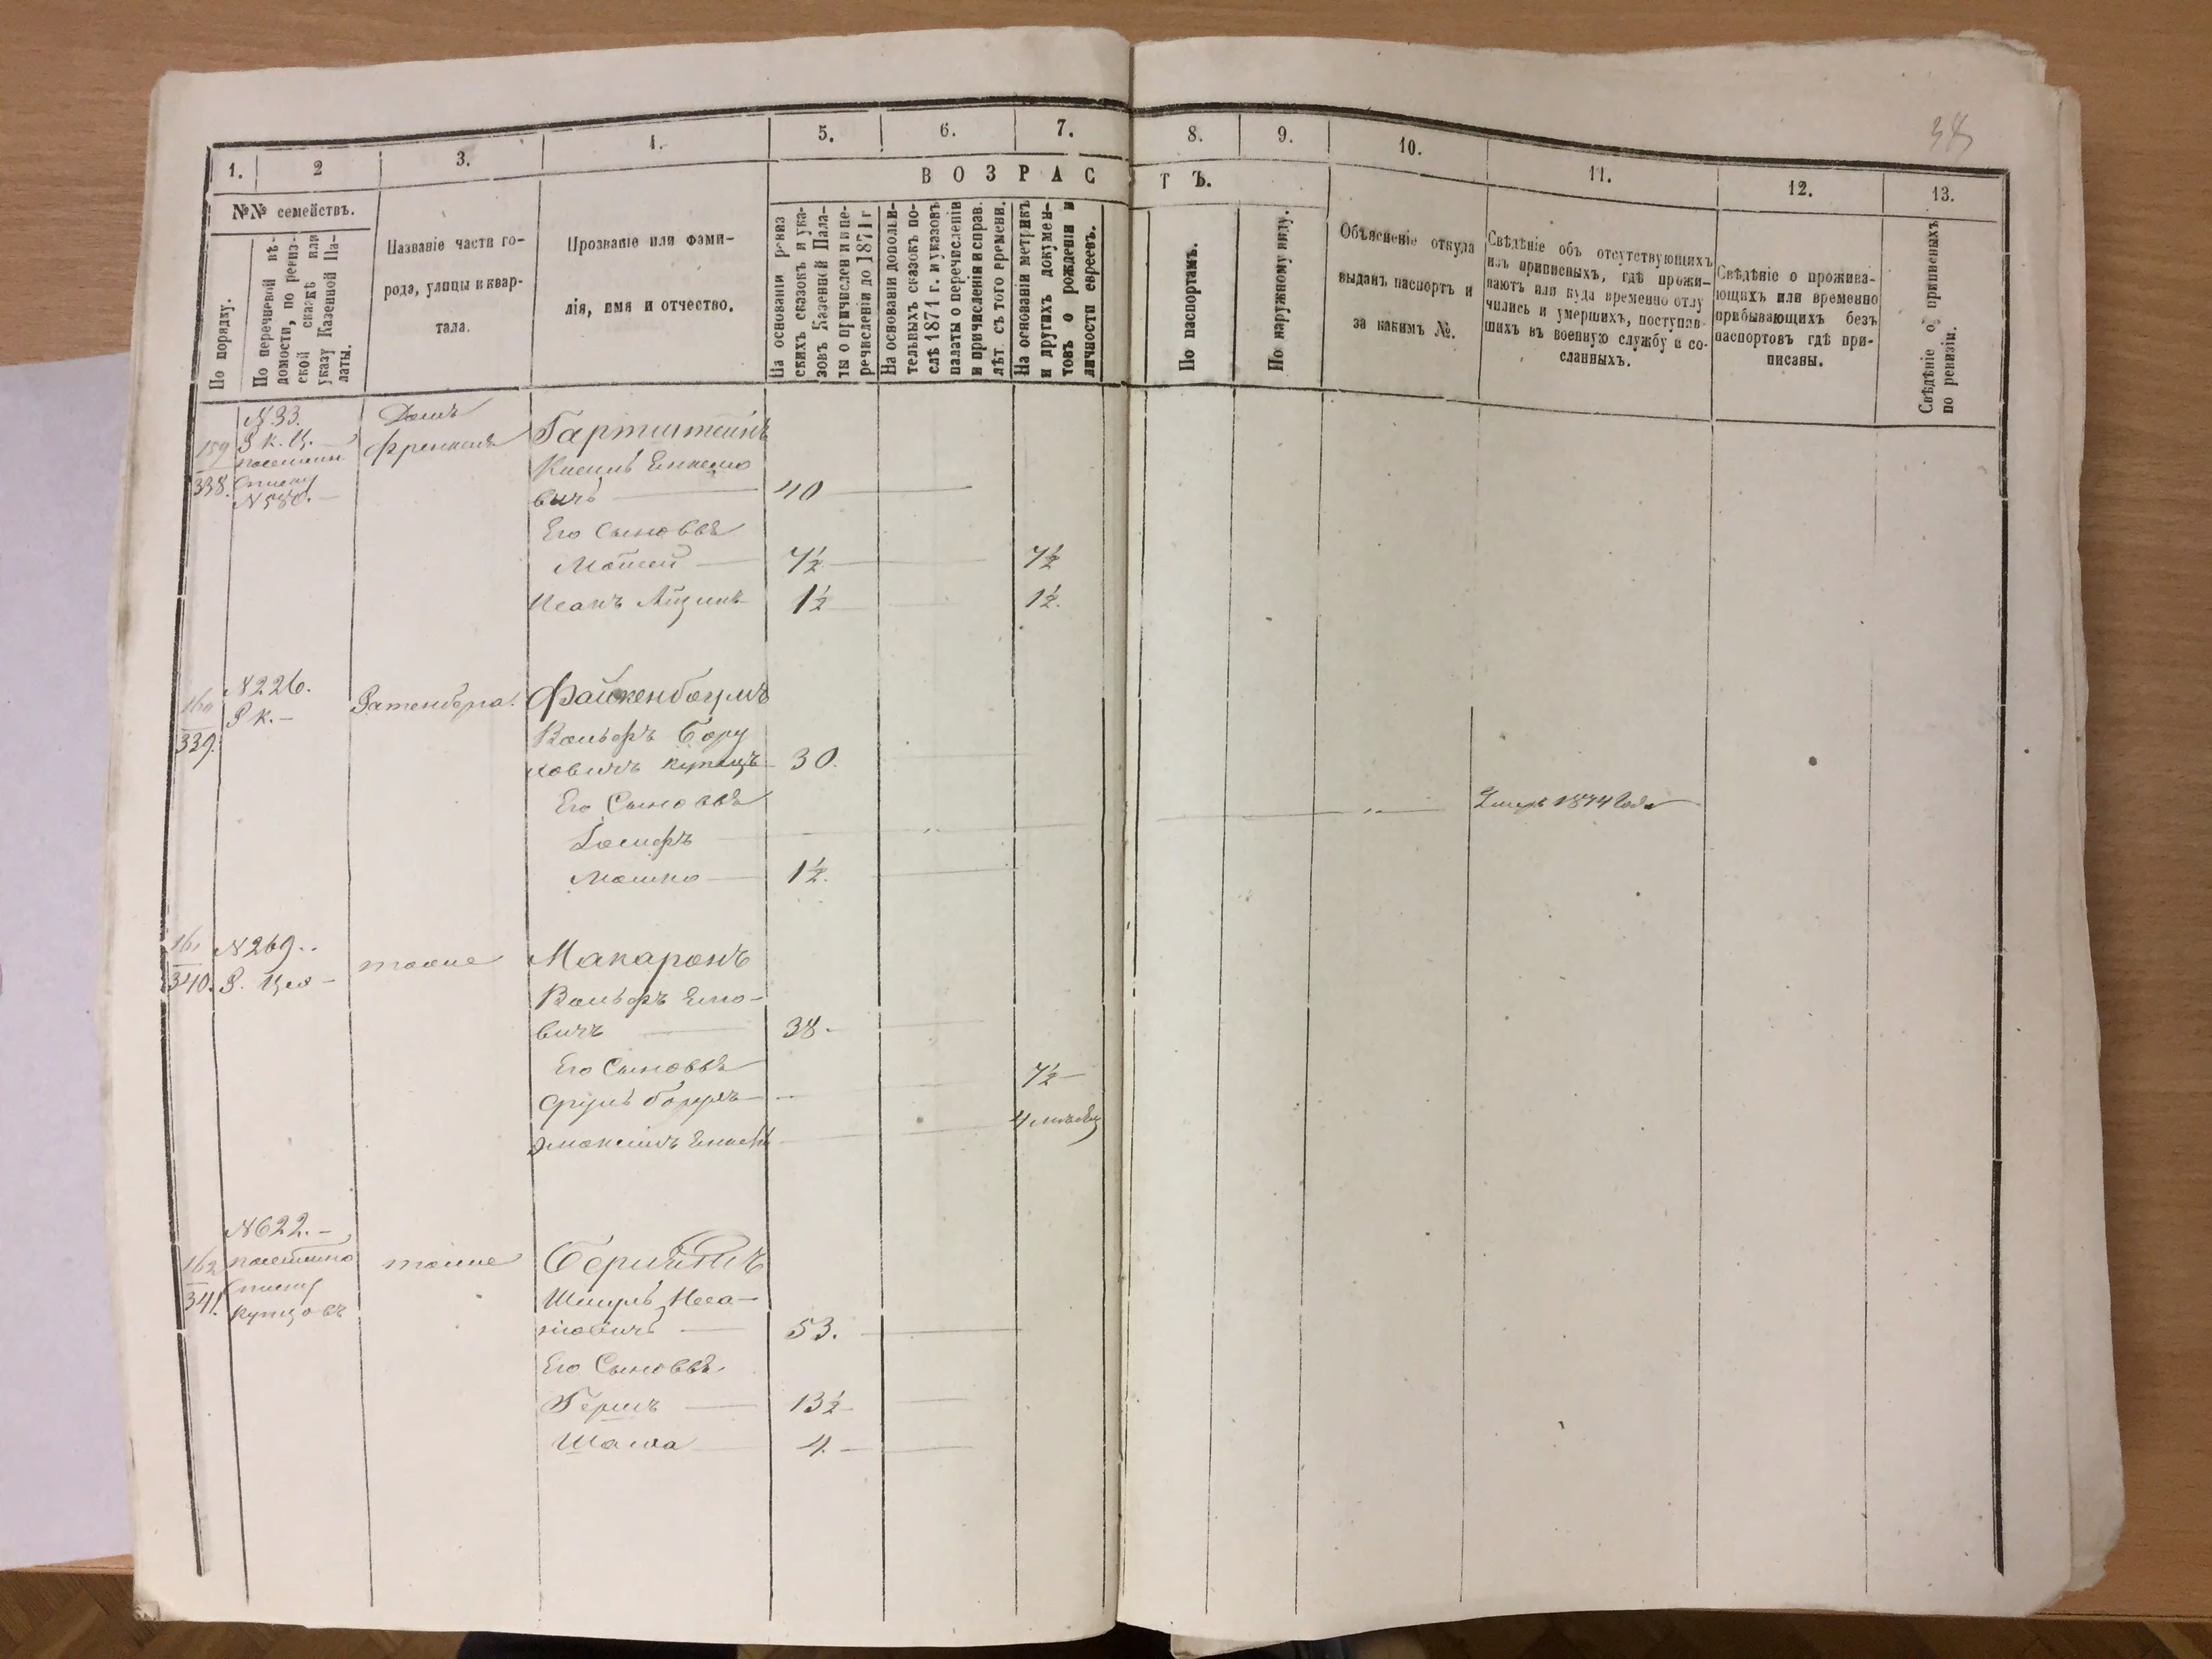 38
1. 2 3. 4. 5. 6. 7. 8. 9. 10. 11. 12. 13.
ВОЗРАСТЪ.
№№ семействъ.
По порядку.
По перечневой вѣ-
домости, по ревиз-
ской сказкѣ или
указу Казенной Па-
латы.
Названіе части го-
рода, улицы и квар-
тала.
Прозваніе или фами-
лія, имя и отчество.
На основаніи ревиз
скихъ сказокъ и ука-
зовъ Казенной Пала-
ты о причисленіи и пе-
речисленіи до 1871 г
На основаніи дополни-
тельныхъ сказокъ по-
слѣ 1871 г. и указовъ
палаты о перечисленіи
и причисленіи и справ.
лѣт. съ того времени.
На основаніи метрикъ
и другихъ докумен-
товъ о рожденіи и
личности евреевъ.
По паспортамъ.
По наружному виду.
Объясненіе откуда
выданъ паспортъ и
за какимъ №.
Свѣдѣніе объ отсутствующихъ
изъ приписныхъ, гдѣ прожи-
ваютъ или куда временно отлу
чились и умершихъ, поступив-
шихъ въ военную службу и со-
сланныхъ.
Свѣдѣніе о прожива-
ющихъ или временно
прибывающихъ безъ
паспортовъ гдѣ при-
писаны.
Свѣдѣніе о приписныхъ
по ревизіи.
159
338.
N 33.
Р к. Ц.
Списку
Домъ
Френкеля
Гартштейнъ
вичъ 40
Его Сыновья
Мошей 7½ 7½
1½ 1½.
160
339.
N 226.
Р к.
Файкенбаумъ
Вольфъ Бору
ховичъ Купецъ 30.
Его Сыновья
Іосифъ Умеръ 1874 года
Мошко 1½.
161
340.
N 269.
тоже
Макаронъ
Вольфъ
вичъ 38.
Его Сыновья
Сруль Борухъ 7½
4 мѣсяц
162
341.
N 622.
Списку
Купцовъ
тоже
Шмуль
53.
Его Сыновья
Гершъ 13½
4.